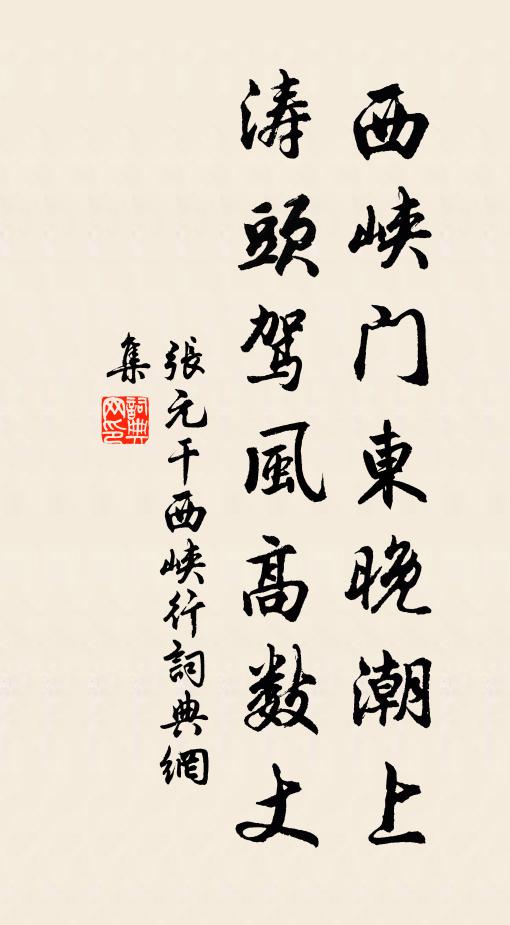 西峡門東晚潮上
涛頭駕風高数丈
張元干西峡行詞典網
集
詞典網印